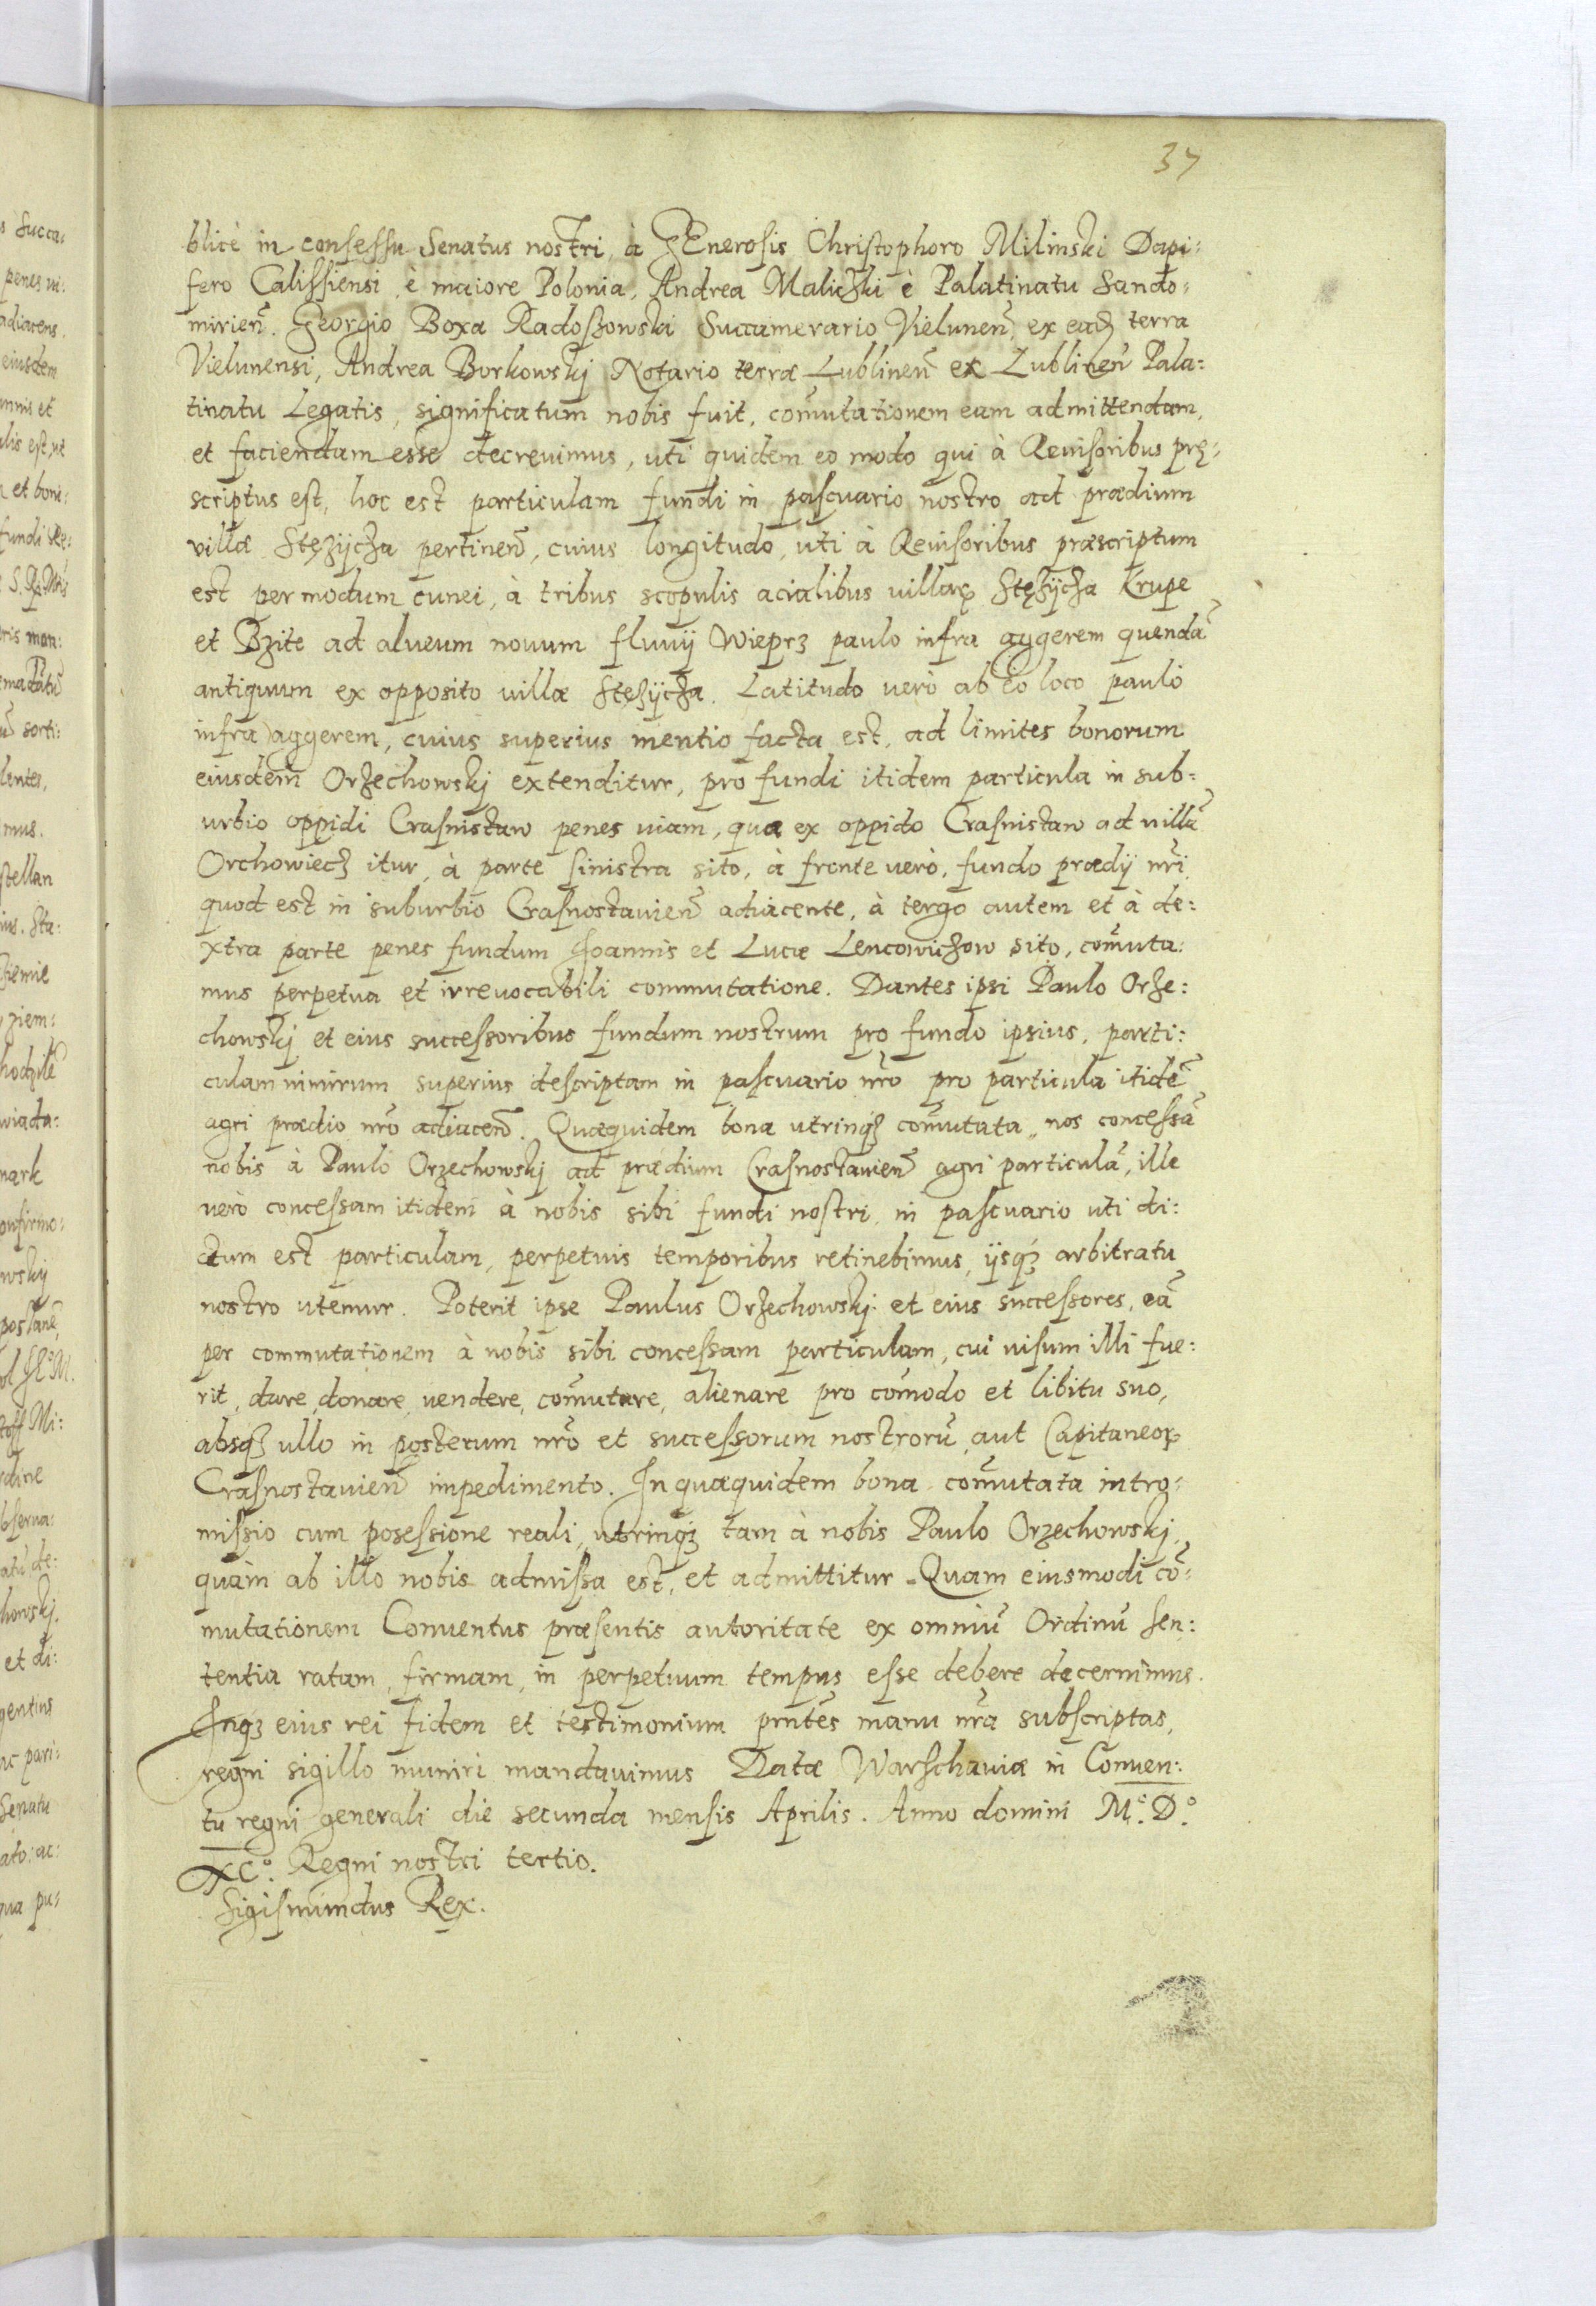 37
blicè in consessu Senatus nostri, à GEnerosis Christophoro Milinski Dapi:
fero Calissiensi, è maiore Polonia, Andrea Maliczki è Palatinatu Sando:
mirien̄. Georgio Boxa Radoszowski Succamerario Vielunen̄, ex eadē terra
Vielunensi, Andrea Borkowskj Notario terræ Lublinen̄ ex Lublinen̄ Pala:
tinatu Legatis, significatum nobis fuit, com̄utationem eam admittendam,
et faciendam esse decrevimus, uti quidem eo modo qui à Revisoribus prę:
scriptus est, hoc est particulam fundi in pascuario nostro ad prædium
villæ Stęzÿcza pertinen̄, cuius longitudo, uti à Revisoribus præscriptum
est per modum cunei, à tribus scopulis acialibus villarꝝ Stężÿcza Krupe
et Bzite ad alveum novum fluvÿ Wieprz paulo infra aggerem quendā
antiquum ex opposito villæ Stęzÿcza. Latitudo verò ab eo loco paulò
infra aggerem, cuius superius mentio facta est, ad limites bonorum
eiusdem Orzechowskj extenditur, pro fundi itidem particula in sub:
urbio oppidi Crasnistaw penes viam, qua ex oppido Crasnistaw ad villā
Orchowiecz itur, à parte sinistra sito, à fronte verò, fundo prædÿ nr̄i
quod est in suburbio Crasnostavien̄ adiacente, à tergo autem et à de:
xtra parte penes fundum Joannis et Lucæ Lencowiczow sito, com̄uta:
mus perpetua et irrevocabili commutatione. Dantes ipsi Paulo Orze:
chowskj et eius successoribus fundum nostrum pro fundo ipsius, parti:
culam nimirum superius descriptam in pascuario nr̄o pro particula itidē
agri prædio nr̄o adiacen̄. Quæquidem bona utrinqꝫ com̄utata, nos concessā
nobis à Paulo Orzechowskj ad prædium Crasnostavien̄ agri particulā, ille
verò concessam itidem à nobis sibi fundi nostri in pascuario uti di:
ctum est particulam, perpetuis temporibus retinebimus, ijsqꝫ arbitratu
nostro utemur. Poterit ipse Paulus Orzechowskj et eius successores, eā
per commutationem à nobis sibi concessam particulam, cui visum illi fue:
rit, dare, donare, vendere, com̄utare, alienare pro com̄odo et libitu suo,
absqꝫ ullo in posterum nr̄o et successorum nostrorū, aut Capitaneoꝝ
Crasnostavien̄ impedimento. In quæquidem bona com̄utata intro:
missio cum posessione reali, utrinqꝫ tam à nobis Paulo Orzechowskj,
quàm ab illo nobis admissa est, et admittitur. Quam eiusmodi cō:
mutationem Conventus præsentis autoritate ex omniū Ordinū sen:
tentia ratam, firmam, in perpetuum tempus esse debere decernimus.
Inqꝫ eius rei fidem et testimonium prn̄tes manu nr̄a subscriptas,
regni sigillo muniri mandavimus Datæ Warschaviæ in Conven:
tu regni generali die secunda mensis Aprilis. Anno domini M°. D°.
XC°. Regni nostri tertio.
Sigismundus Rex.